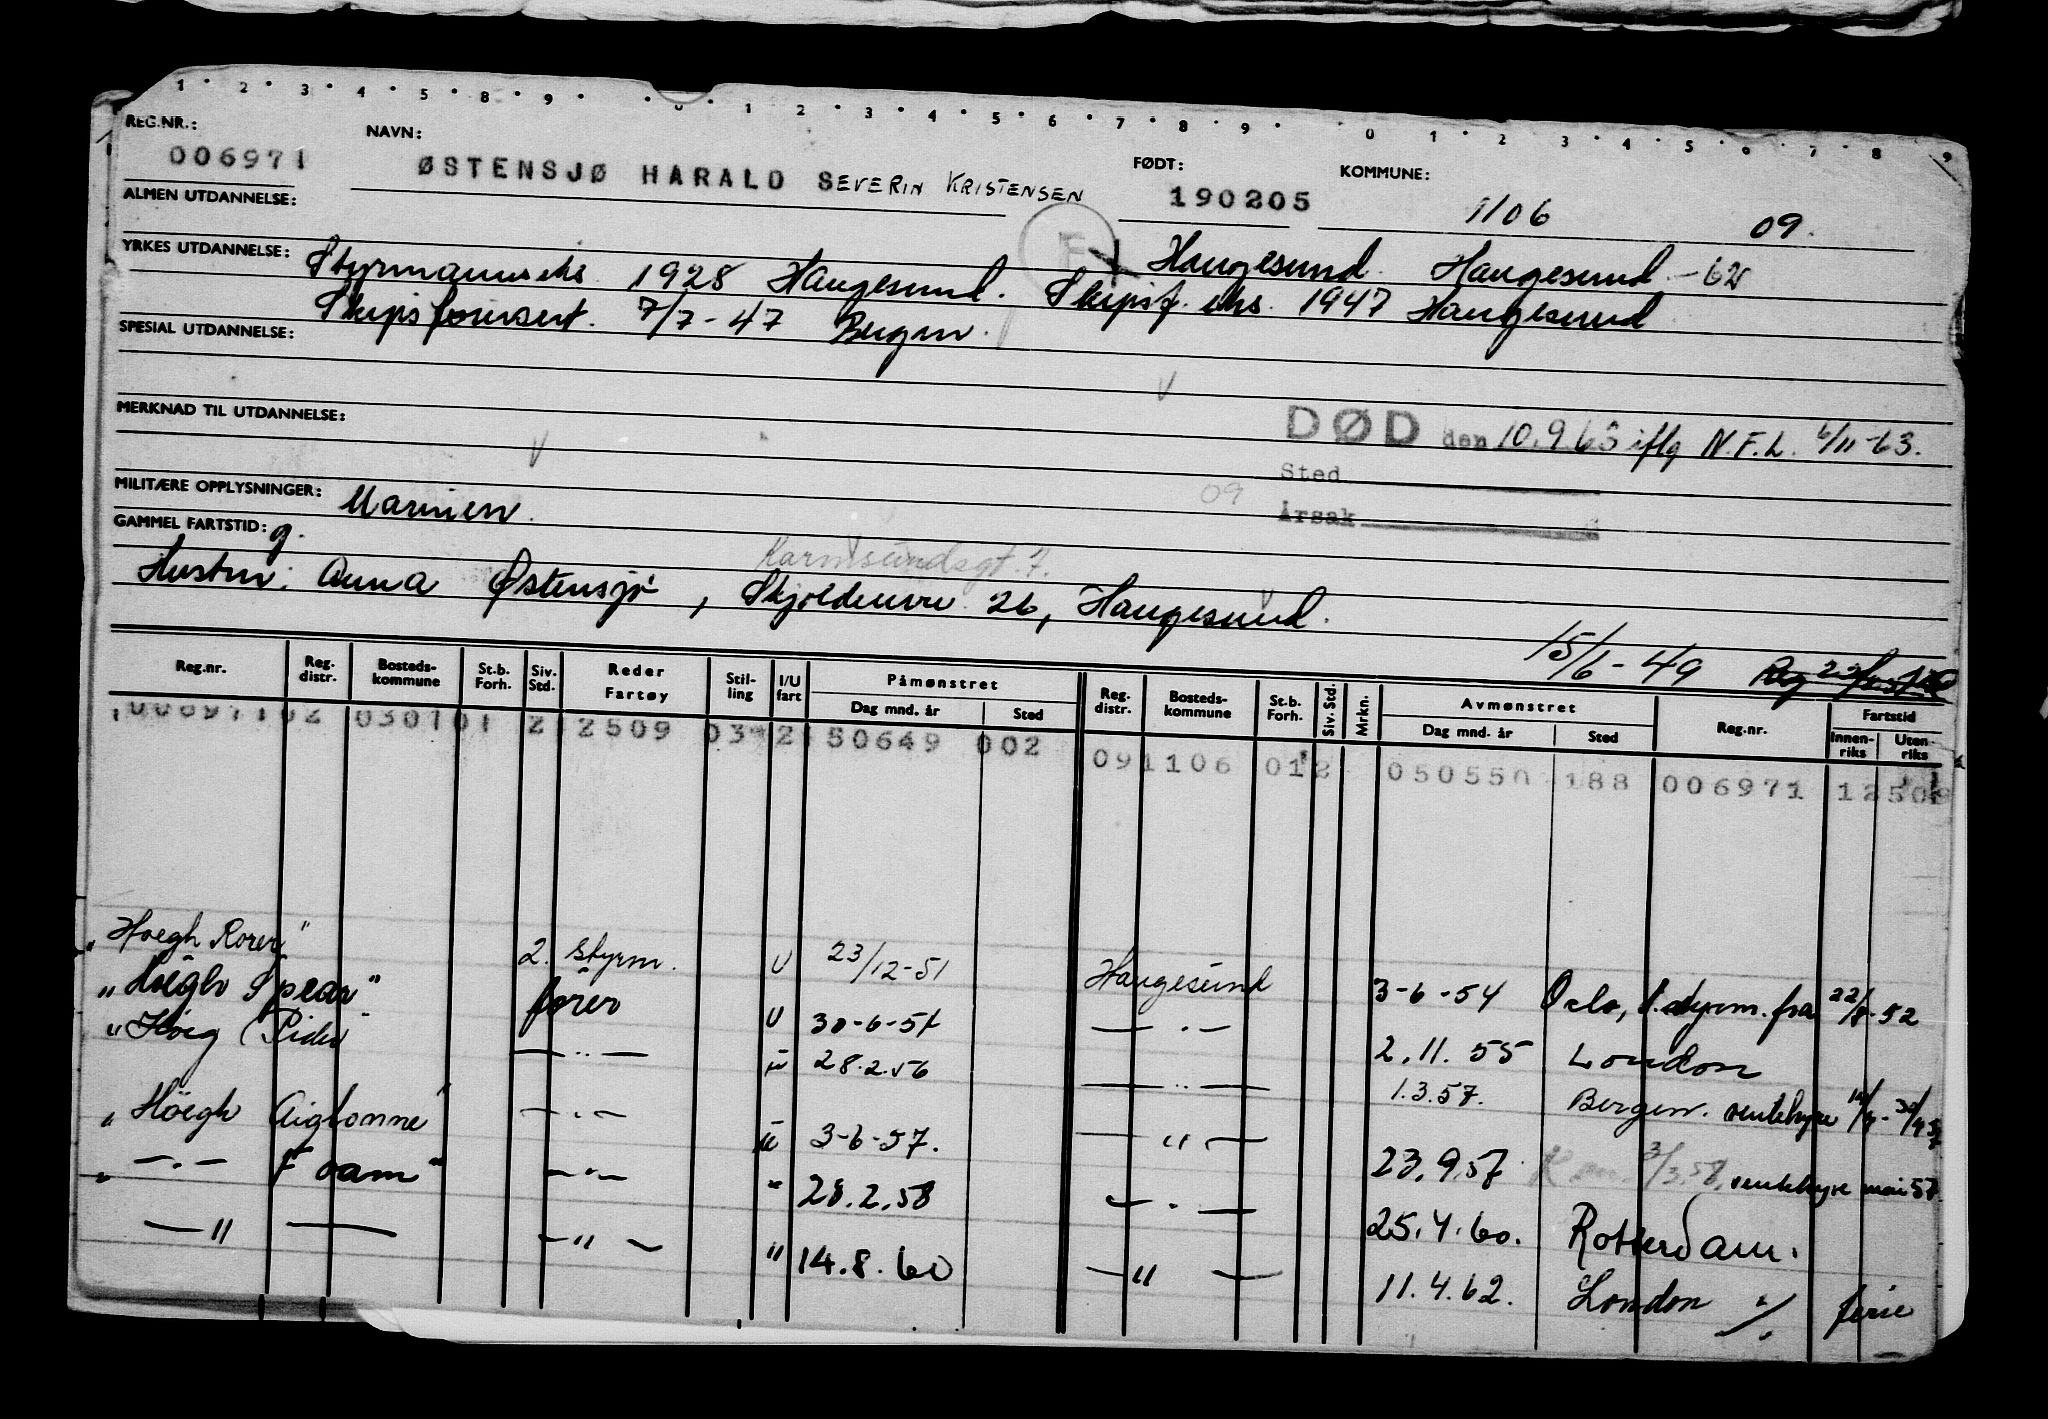 1 · 2 · 3 · 4 · 5 · 8 · 9 · · 0 · 1 2 · 3 · 4 · 5 · 6 · 7 · 8 · 9 · 0 · 1 · 2 · 3 · 4 · 5 · 6 · 7 · 8 · 9
REG.NR.: NAVN: FØDT: KOMMUNE:
006971 ØSTENSJØ HARALD SEVERIN KRISTENSEN 190205 1106 09.
ALMEN UTDANNELSE:
F Haugesund. Haugesund -62
YRKES UTDANNELSE: Styrmannseks. 1928 Haugesund. Skipsf. eks. 1947 Haugesund
Skipsførersert. 7/7-47 Bergen.
SPESIAL UTDANNELSE:
MERKNAD TIL UTDANNELSE:
DØD den 10.9.63 iflg N.F.L. 6/11-63.
Sted
MILITÆRE OPPLYSNINGER: Marinen. 09
Årsak
GAMMEL FARTSTID: g.
Karmsundsgt. 7.
Hustru: Anna Østensjø, Skjoldeveien 26, Haugesund.
15/6-49
Reg.nr. Reg. distr. Bosteds- kommune St.b. Forh. Siv. Std. Reder Fartøy Stil- ling I/U fart Påmønstret Dag mnd. år Sted Reg. distr. Bosteds- kommune St.b. Forh. Siv. Std. Mrkn. Avmønstret Dag mnd. år Sted Reg.nr. Fartstid Innen- riks Uten- riks
00697102 030101 2 2509 039 2 150649 002 091106 012 050550 188 006971 12508
"Hoegh Rover" 2. styrm. U 23/12-51 Haugesund 3-6-54 Oslo, 1. styrm. fra 22/8-52
"Høegh Spear" fører U 30-6-54 — " — 2.11.55 London
"Høeg — " — " 28.2.56 — " — 1.3.57. Bergen. ventehyre
"Höegh Aiglonne" — " — " 3-6-57. — " — 23.9.57 3/3.58, ventehyre mai 57
" — " — Foam" — " — " 28.2.58 — " — 25.4.60. Rotterdam.
— " — — " — " 14.8.60 — " — 11.4.62. London ferie